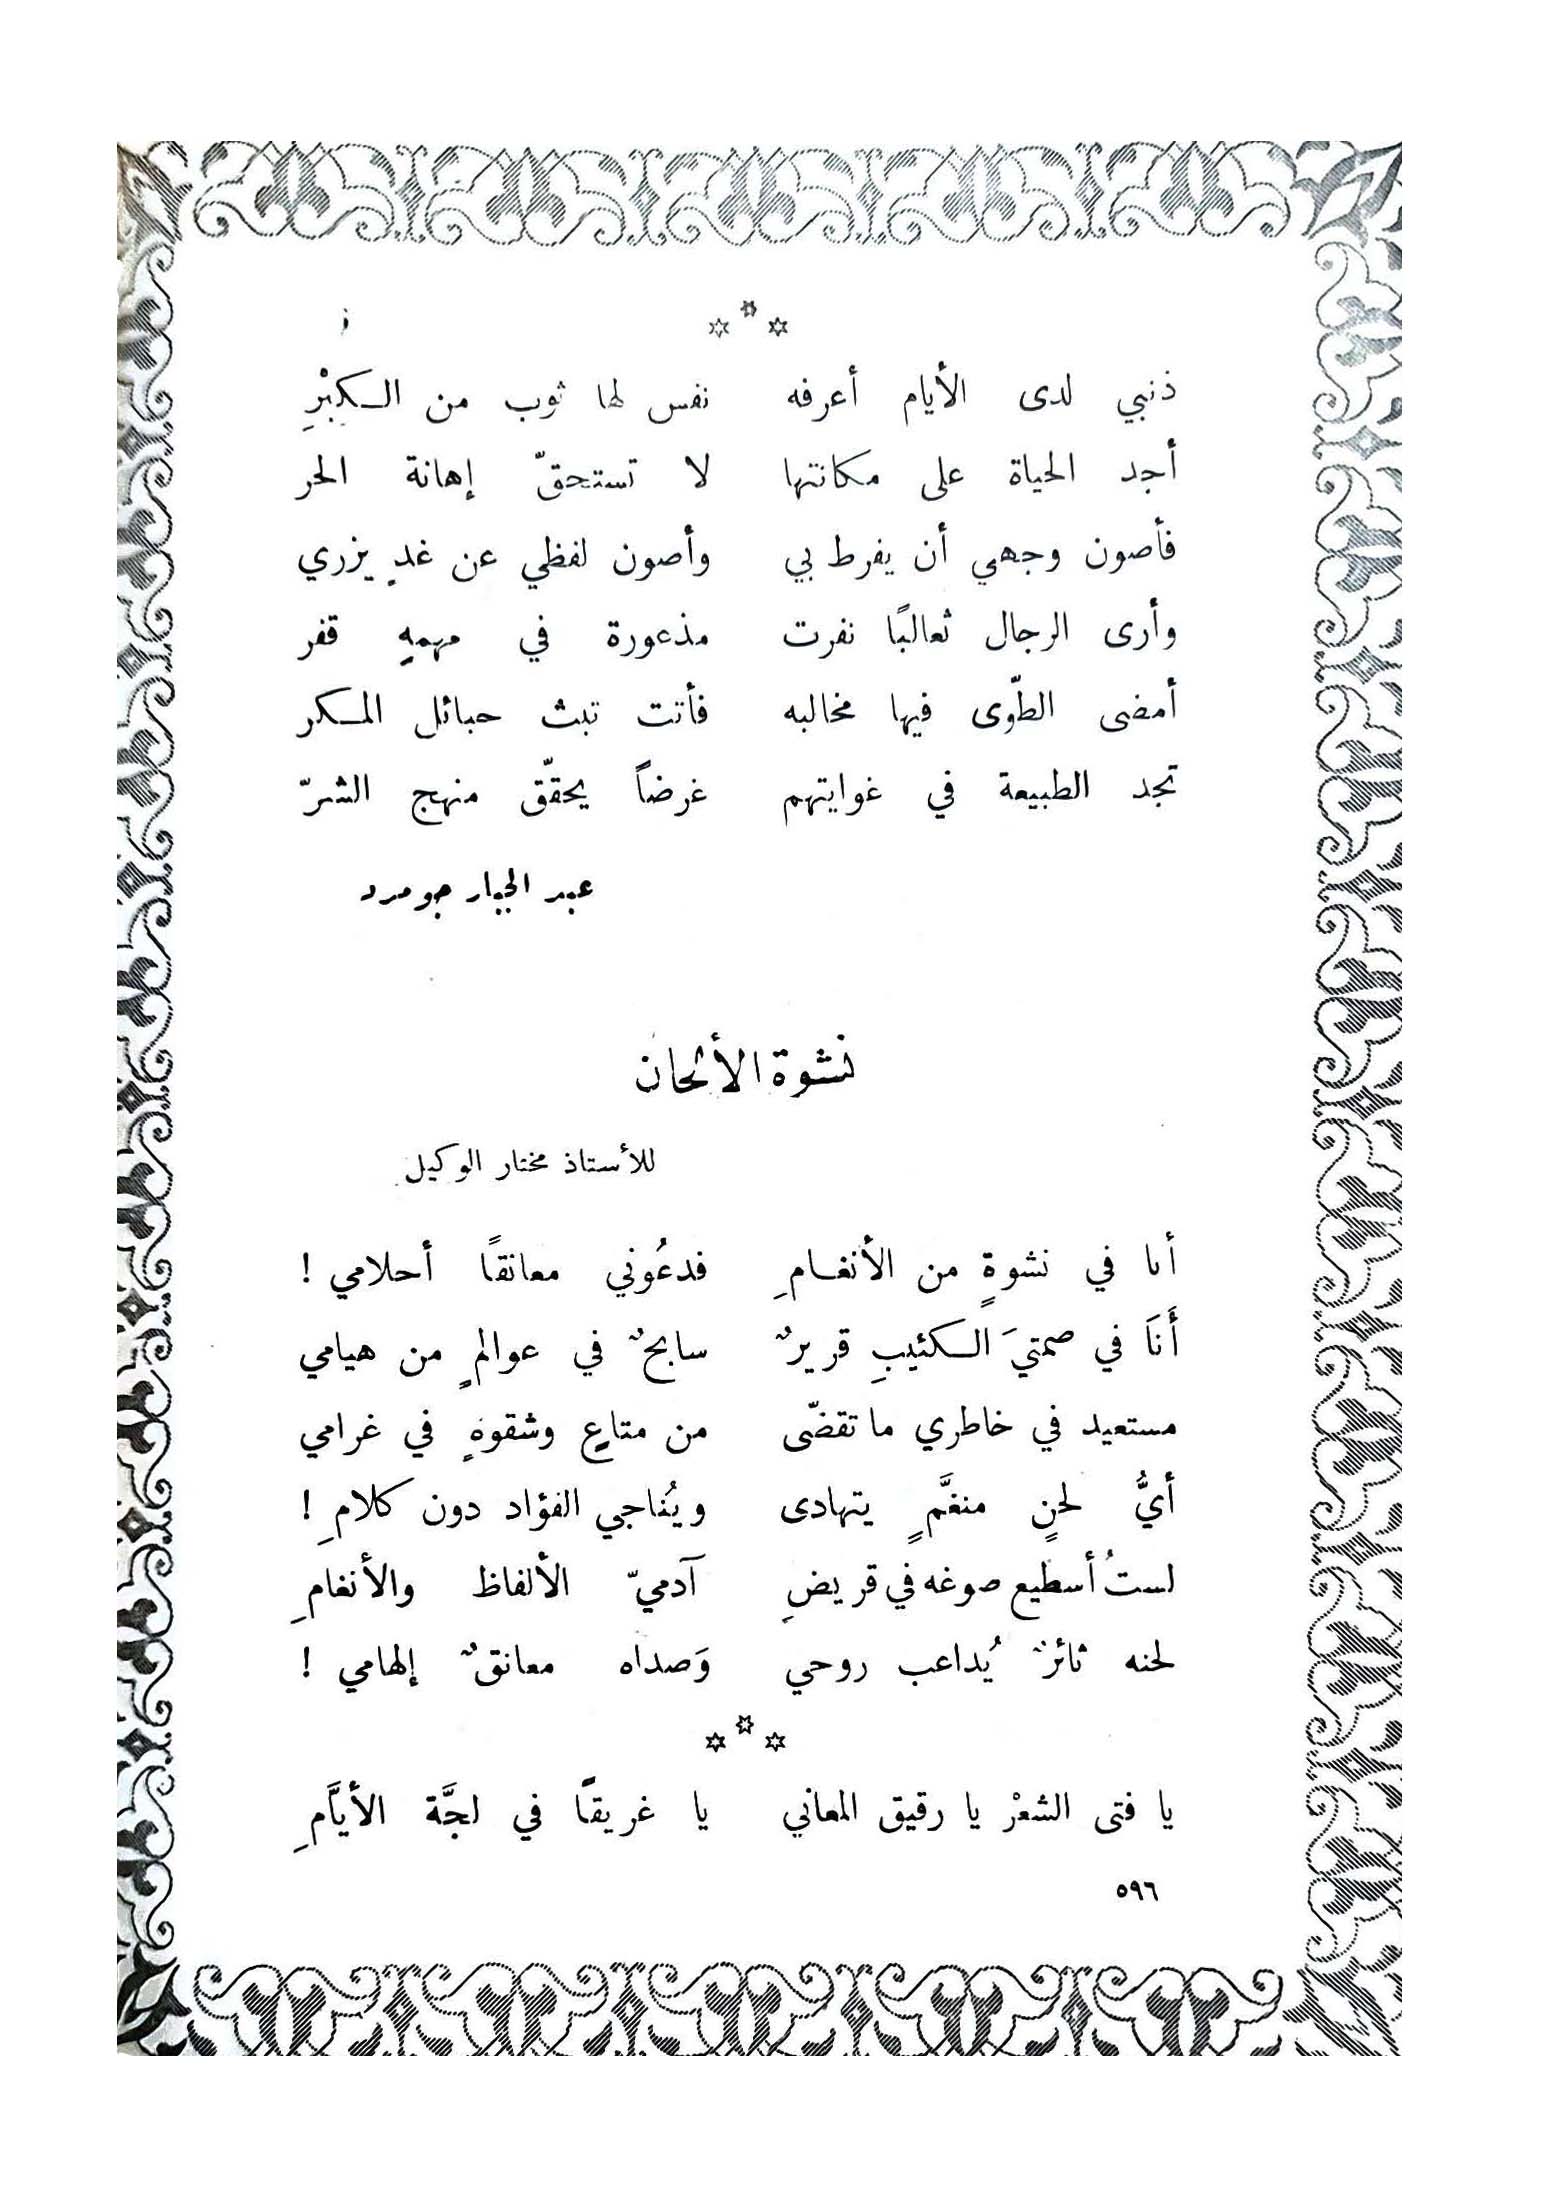 ذنبي لدى الأيام أعرفه نفس لها ثوب من الكبْرِ
أجد الحياة على مكانتها لا تستحقّ إهانة الحر
فأصون وجهي أن يفرط بي وأصون لفظي عن غدٍ يزري
وأرى الرجال ثعالبًا نفرت مذعورة في مهمهٍ قفر
أمضى الطّوى فيها مخالبه فأتت تبث حبائل المكر
تجد الطبيعة في غوايتهم غرضاً يحقّق منهج الشرّ
عبد الجبار جومرد
نشوة الألحان
للأستاذ مختار الوكيل
أنا في نشوةٍ من الأنغامِ فدعُوني معانقًا أحلامي !
أَنَا في صمتيَ الكئيبِ قريرٌ سابحٌ في عوالمٍ من هيامي
مستعيد في خاطري ما تقضّى من متاعٍ وشقوةٍ في غرامي
أيُّ لحنٍ منغَّمٍ يتهادى ويُناجي الفؤاد دون كلامِ !
لستُ أسطيع صوغه في قريضِ آدميّ الألفاظ والأنغامِ
لحنه ثائرٌ يُداعب روحي وَصداه معانقٌ إلهامي !
يا فتى الشعْر يا رقيق المعاني يا غريقاً في لجَّة الأيَّامِ
٥٩٦